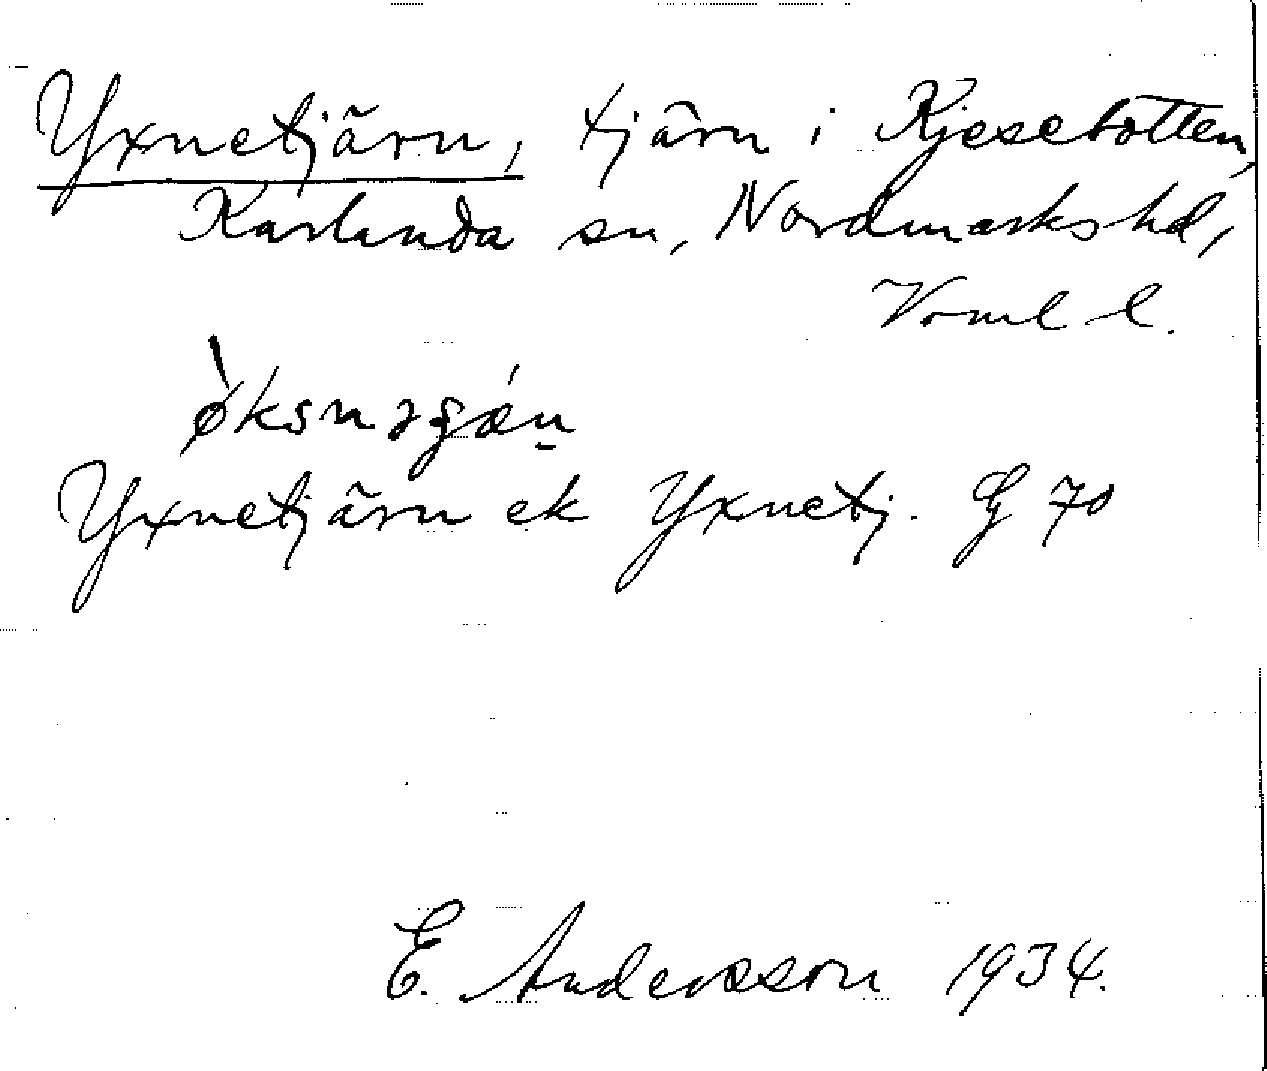 Yxnetjärn, tjärn i Kjesebotten,
Karlanda sn, Nordmarks hd,
Verml l.
ø̀ksnəgǽn̠
Yxnetjärn ek Yxnetj. G 70
E. Andersson 1934.